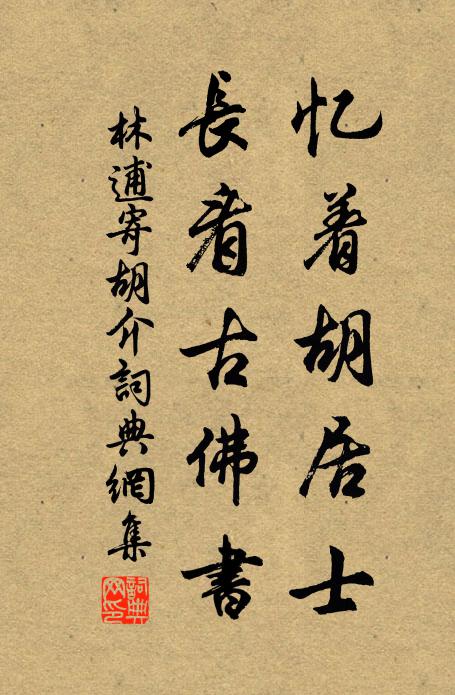 忆着胡居士
長看古佛書
林逋寄胡介詞典網集
詞典网印